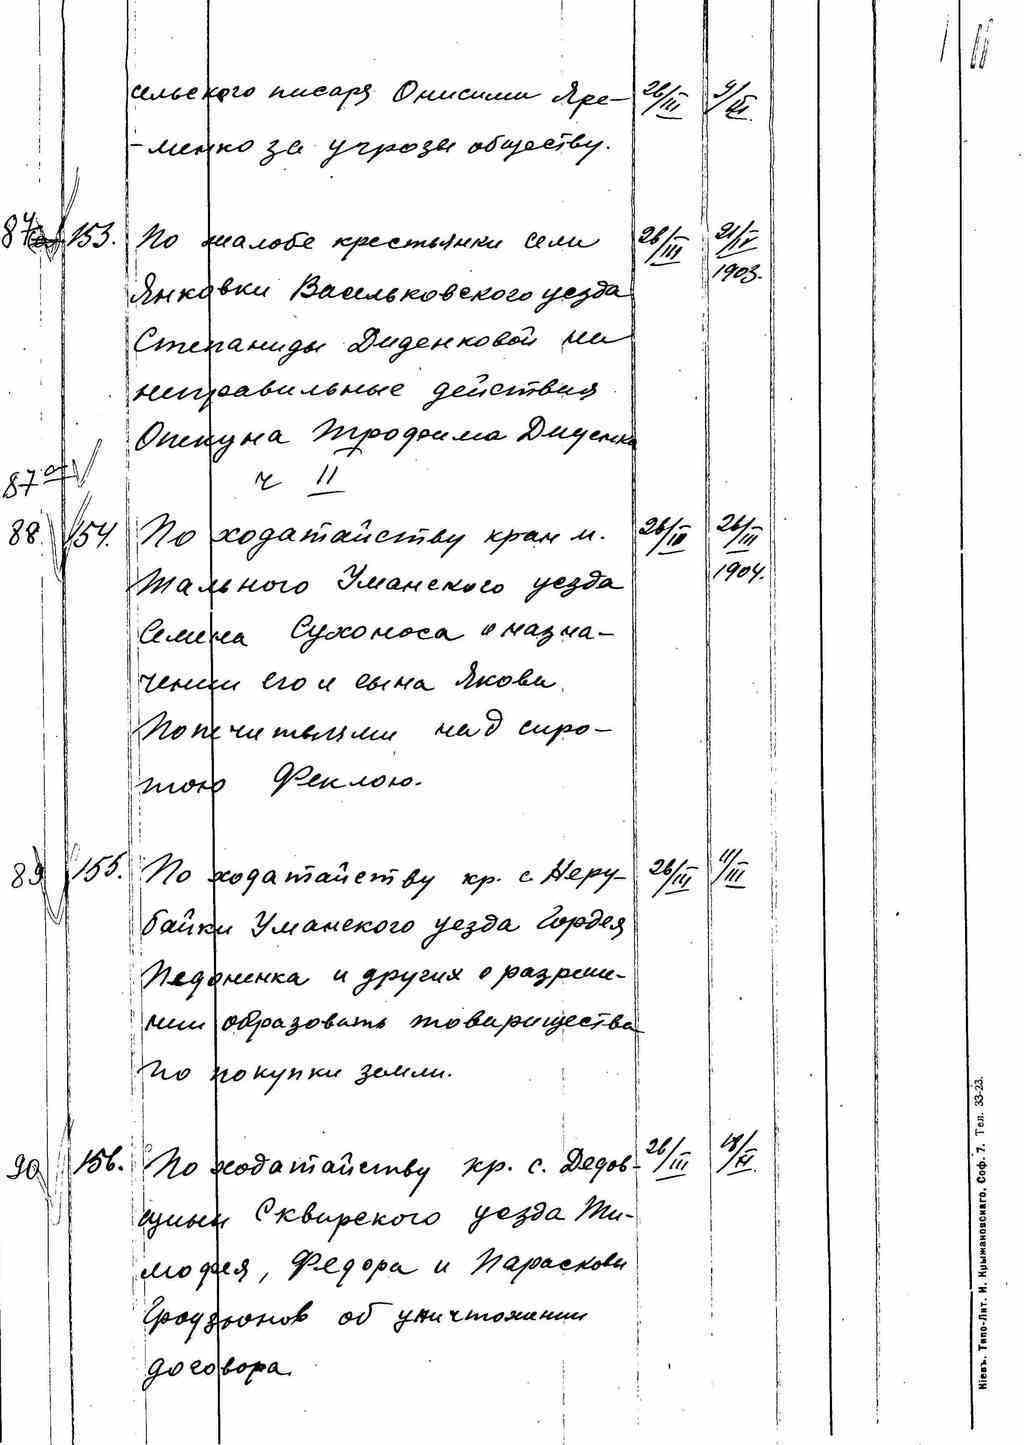 сельского писаря Онисима Яре- 26/III 9/XI.
-менко за угрозы обществу.
87а 153. По жалобе крестьянки села 26/III 21/IV
1903.
Янковки Васильковского уезда
Степаниды Диденковой на
неправильные действия
Опекуна Трофима Диденка
ч II
87а
88. 154. По ходатайству кр-ан м. 26/III 26/III
1904.
Тального Уманского уезда
Семена Сухоноса о назна-
чении его и сына Якова
Попечителями над сиро-
тою Феклою.
89 155. По ходатайству кр. с. Неру- 26/III 11/III
байки Уманского уезда Гордея
и других о разреше-
нии образовать товарищества
по покупки земли.
90 156. По ходатайству кр. с. Дедов- 26/III 18/XI.
щины Сквирского уезда Ти-
мофея, Федора и Парасковы
Гроудзионов об уничтожении
договора.
Кіевъ. Типо-Лит. И. Крыжановскаго, Соф. 7. Тел. 33-23.